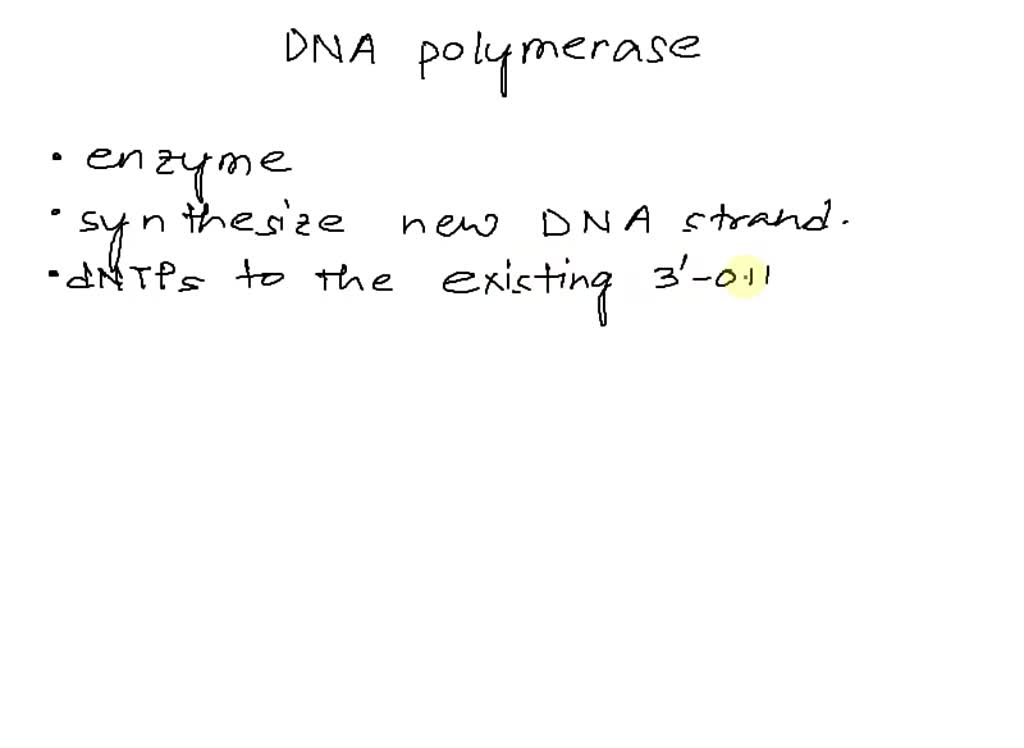 DNA polymerase
• enzyme
• synthesize new DNA strand.
• dNTPs to the existing 3'-O